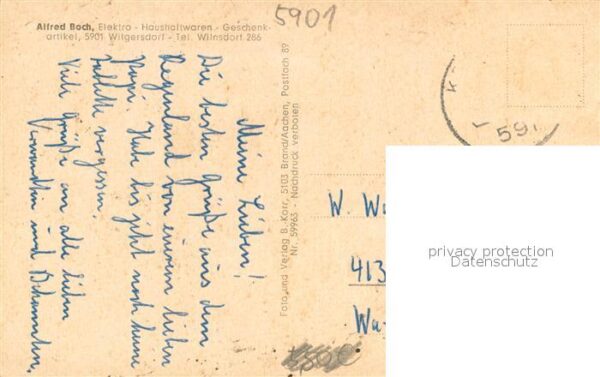 5901
Alfred Boch, Elektro - Haushaltwaren - Geschenk-
artikel, 5901 Wilgersdorf - Tel. Wilnsdorf 286
Meine Lieben!
Die besten Grüße aus dem
Regenland von eurem lieben
Papi. Habe bis jetzt noch keine
Tablette vergessen.
Viele Grüße an alle lieben
Verwandten und Bekannten.
Foto und Verlag B. Korr, 5103 Brand/Aachen, Postfach 89
Nr. 59965 - Nachdruck verboten
59
W. Wa
413
Wa
privacy protection
Datenschutz